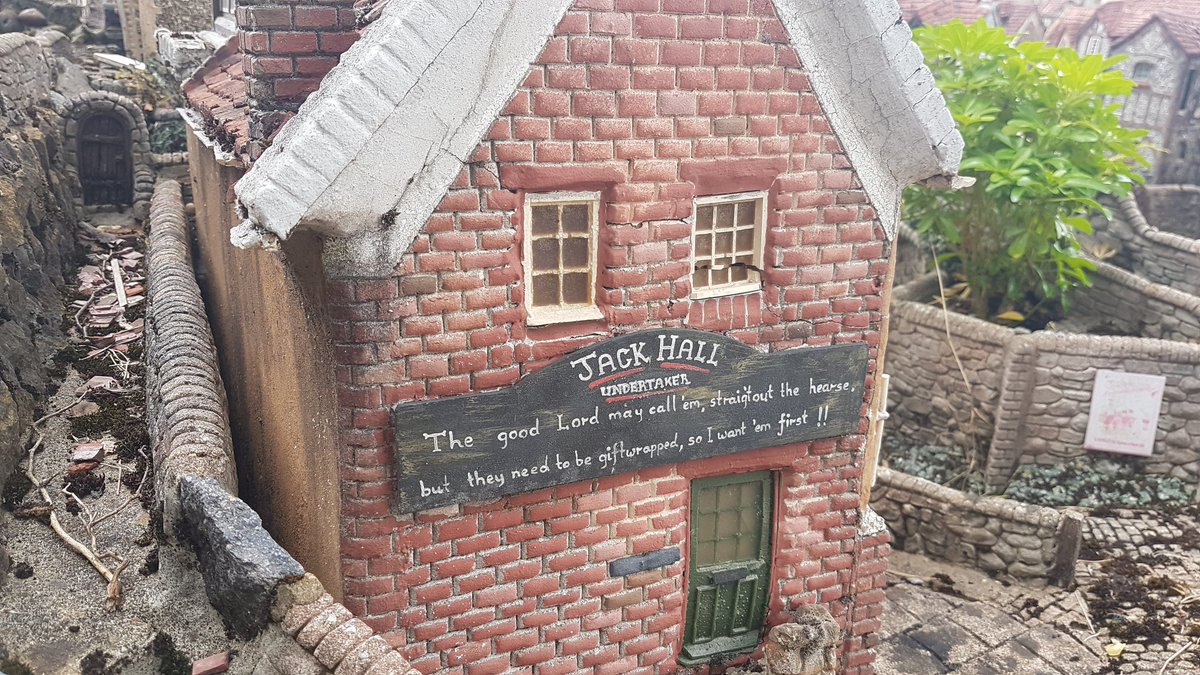 JACK HALL
UNDERTAKER
The good Lord may call 'em, straig'tout the hearse.
but they need to be giftwrapped, so I want 'em first !!